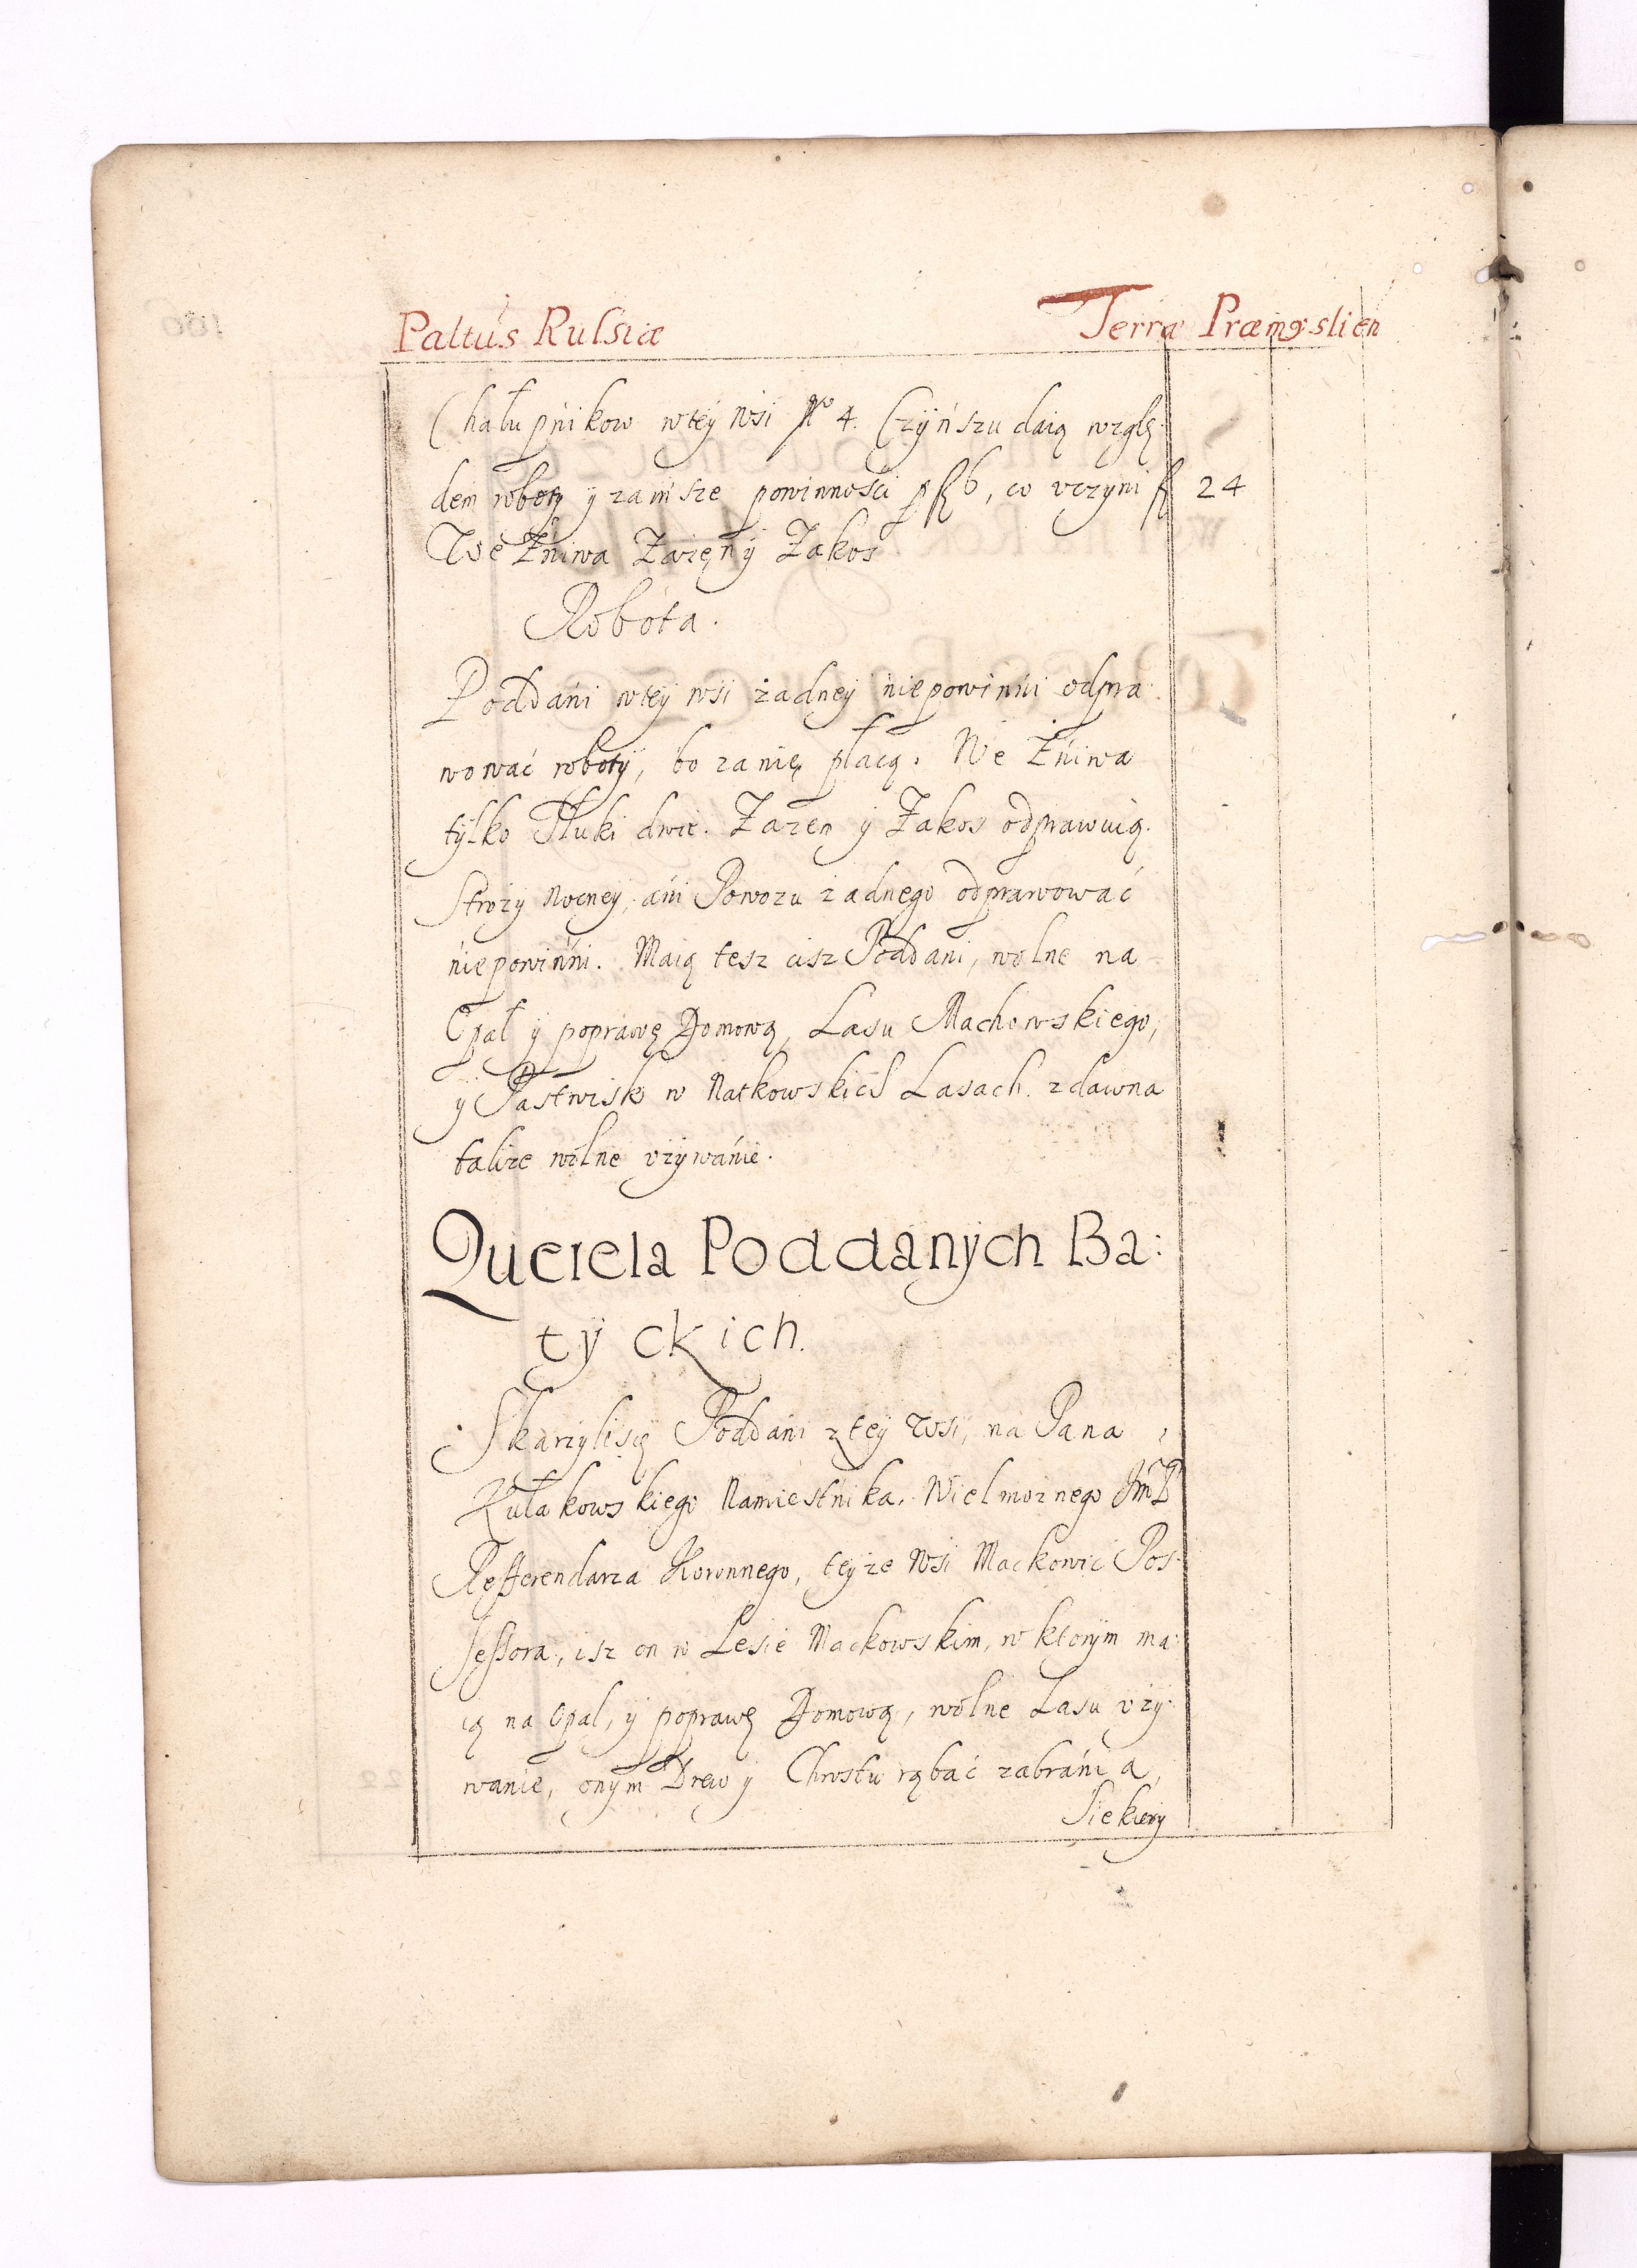 Paltus Russiæ Terra Præmysslien
Chałupnikow wtey Wsi No 4. Czynszu daią wzglę:
dem roboty y zawsze powinnosci p fl 6, co vczyni fl 24
We Zniwa Zazęn y Zakos
Robota.
Poddani wtey wsi żadney niepowinni odpra:
wować roboty, bo zanię płacą. We Zniwa
tylko Tłuki dwie. Zazen y Zakos odprawuią.
Stroży Nocney, ani Powozu żadnego odprawować
niepowinni. Maią tesz cisz Poddani, wolne na
Opał y poprawę Domową, Lasu Machowskiego,
y Pastwisk w Natkowskich Lasach. zdawna
takze wolne vzywanie.
Querela Poddanych Ba:
tyckich.
Skarzylisię Poddani ztey Wsi, na Pana
Kułakowskiego Namiestnika, Wielmoznego JmP
Refferendarza Koronnego, teyze Wsi Mackowic Pos:
sessora, isz on w Lesie Mackowskim, w ktorym ma:
ią na Opal, y poprawę Domową, wolne Lasu vzy:
wanie, onym Drew y Chrostu rąbać zabrania,
Siekiery